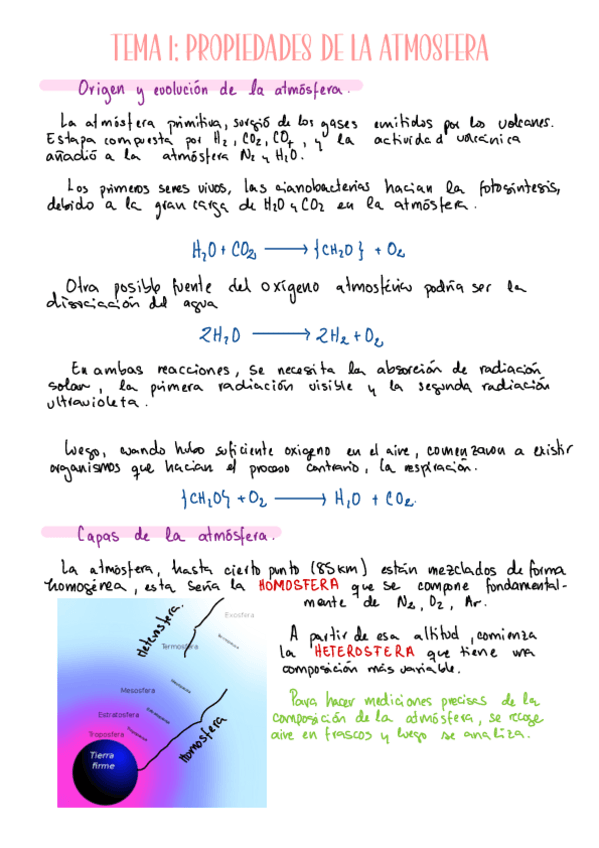 TEMA 1: PROPIEDADES DE LA ATMOSFERA
Origen y evolución de la atmósfera.
La atmósfera primitiva, surgió de los gases emitidos por los volcanes.
Estapa compuesta por H₂, CO₂, CO₄, y la actividad volcánica
añadió a la atmósfera N₂ y H₂O.
Los primeros seres vivos, las cianobacterias hacian la fotosíntesis,
debido a la gran carga de H₂O y CO₂ en la atmósfera.
H₂O + CO₂ → {CH₂O} + O₂
Otra posible fuente del oxígeno atmosférico podría ser la
disociación del agua
2H₂O → 2H₂ + O₂
En ambas reacciones, se necesita la absorción de radiación
solar, la primera radiación visible y la segunda radiación
ultravioleta.
Luego, cuando hubo suficiente oxigeno en el aire, comenzaron a existir
organismos que hacian el proceso contrario, la respiración.
{CH₂O} + O₂ → H₂O + CO₂.
Capas de la atmósfera.
La atmósfera, hasta cierto punto (85km) están mezclados de forma
homogénea, esta seña la HOMOSFERA que se compone fundamental-
mente de N₂, O₂, Ar.
A partir de esa altitud, comienza
la HETEROSFERA que tiene una
composición más variable.
Para hacer mediciones precisas de la
composición de la atmósfera, se recoge
aire en frascos y luego se analiza.
Heterosfera.
Exosfera
Termosfera
Termopausa
Mesosfera
Mesopausa
Estratosfera
Estratopausa
Troposfera
Tropopausa
Homosfera
Tierra
firme